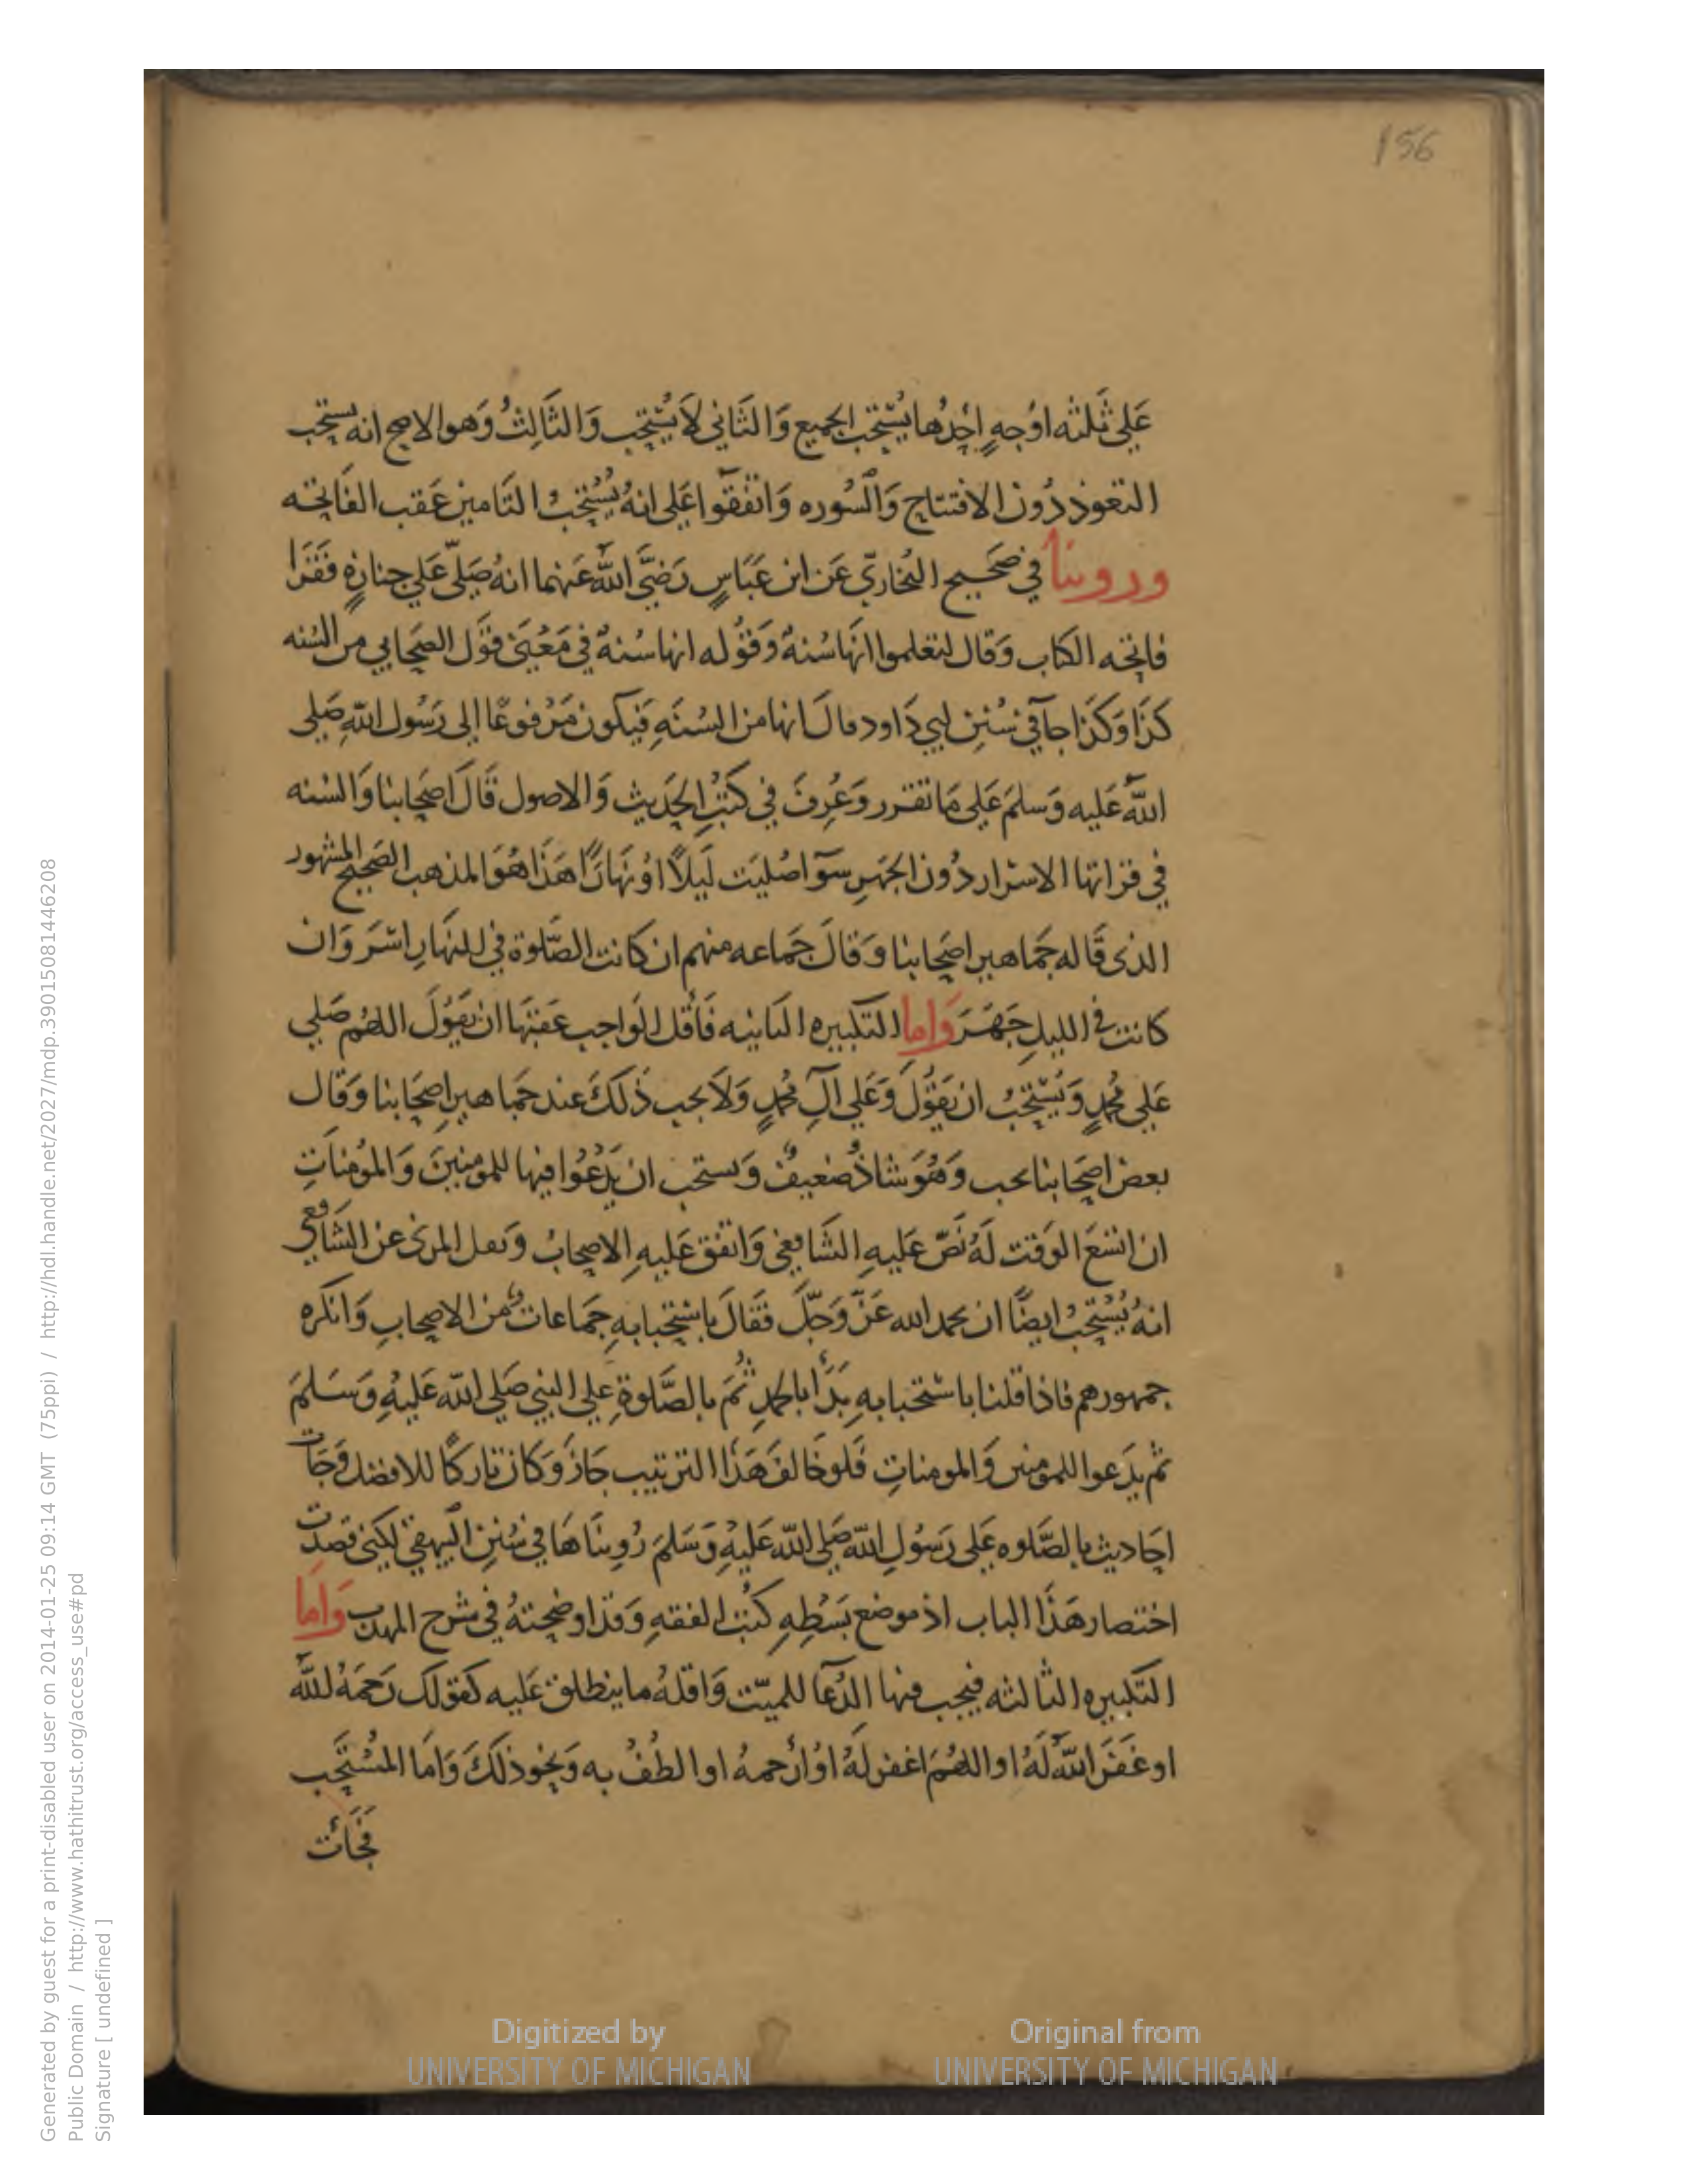 156
عَلي ثَلثه اوُجهٍ احَدُها يُسْتحَب الجميع وَالثَاني لاَ يُسْتحِب وَالثَالِثُ وَهو الاصح انه يستحب
التعوذ دُون الافتتاح وَالسُوره وَاتفقوا عَلي انهُ يُسْتحَبُ التَامين عَقب الفَاتحه
وروينا في صَحيح البُخاريّ عَن ابن عَبَاسٍ رَضيَّ اللَّه عَنهما انهُ صَلّي عَلي جنازهٍ فقَرَا
فاتحه الكتاب وَقال لتعلموا انَها سُنةٌ وَقوُله انها سُنةٌ في مَعْنيَ قوَل الصَحابي من السُنه
كذَا وَكذَا جآ في سُنَنِ ابي دَاود قالَ انها من السُنَهِ فَيكون مَرْفوعًا إلي رَسُول اللّهِ صَلي
اللَّه عَليه وَسلمَ عَلي مَا تقرر وَعُرِفَ في كتُبِ الحَديثِ وَالاصول قَالَ اصَحابنا وَالسُنه
في قراتها الاسْرار دُون الجَهرِ سوَآ صُليَت لَيلاً اوُ نَهارًا هَذا هُوَ المذهب الصَحيح المشهور
الذى قَاله جَماهير اصَحابنا وَقالَ جَماعه منهم ان كانت الصَّلوة في النهَارِ اسَرَ وَان
كانت في الليلِ جَهَرَ وَاما التكبيره الثانيه فَاقل الوَاجب عَقبَها ان يَقوُلَ اللهُم صَلي
عَلي مُحَمدٍ وَيُسْتحَبُ ان يَقوُلَ وَعَلي آلِ مُحمدٍ وَلاَ يجب ذَلكَ عند جَماهير اصِحَابنا وَقال
بعض اصَحابنا يحب وَهُوَ شاذٌ ضعيفٌ وَيستحب ان يَدْعُوا فيها للمومنِينَ وَالمؤمنَاتِ
ان اتسَعَ الوَقت لَهُ نَصّ عَليهِ الشَافِعي وَاتفق عَليهِ الاصحابُ وَنقل المزنى عن الشَافِعي
انهُ يُسْتحَبُ ايضًا ان يحمد الله عَزَّ وَجَلَّ فقَالَ باسْتحِبابهِ جَماعاتٌ من الاصِحابِ وَانكره
جمهورهم فاذا قلنا باستحبابهِ بَدَأ بالحمدِ ثُمَ بالصَّلوةِ علي النبي صَلي اللّه عَليهِ وَسَلمَ
ثم يدَعوا للمومنين وَالمومناتِ فَلو خَالفَ هَذا الترتيب جَازَ وَكان تاركًا للافضل وَجَات
احَاديث بالصَّلوه عَلي رَسُولِ اللّه صَلي اللّه عَليهِ وَسَلمَ رُوينَاهَا في سُنَنِ البيهقي لكِني قصدت
اختصار هَذَا الباب اذ موضع بَسْطِهِ كتُب الفقهِ وَقد اوضحتهُ في شرح المهذب وَامَا
التكبيره الثالثه فيجب فيها الدُعآ للميّت وَاقلهُ ما ينطلق عَليه كقولك رَحمَهُ اللَّه
او غفَرَ اللَّه لَهُ او اللهُمَ اغفر لَهُ اوُ ارَحمهُ او الطُفُ به وَنحو ذلكَ وَامَا المُسْتحَب
فجَأت
Digitized by
UNIVERSITY OF MICHIGAN
Original from
UNIVERSITY OF MICHIGAN
Generated by guest for a print-disabled user on 2014-01-25 09:14 GMT (75ppi) / http://hdl.handle.net/2027/mdp.39015081446208
Public Domain / http://www.hathitrust.org/access_use#pd
Signature [ undefined ]